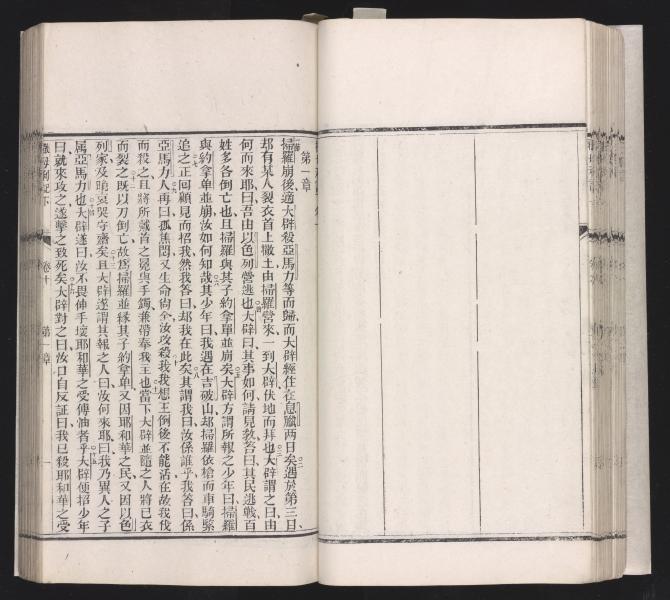 第一章
掃羅崩後適大辟殺亞馬力等而歸而大辟經住在息臘两日矣遇於第三日
却有某人裂衣首上撒土由掃羅營來一到大辟伏地而拜也大辟謂之曰由
何而來耶曰吾由以色列營逃也大辟曰其事如何請見教答曰其民逃戰百
姓多各倒亡也且掃羅與其子約拿單並崩矣大辟方謂所報之少年曰掃羅
與約拿单並崩汝如何知哉其少年曰我遇在吉破山却掃羅依槍而車騎緊
追之正回顧見而招我然我答曰却我在此矣其謂我曰汝係誰乎我答曰係
亞馬力人再曰孤焦悶又生命尚全汝攻殺我我想王倒後不能活在故我伐
而殺之且將所戴首之冕與手鐲兼帶奉我主也當下大辟並隨之人將已衣
而裂之既以刀倒亡故為掃羅並緣其子約拿单又因耶和華之民又因以色
列家及晚哀哭守齋矣且大辟遂謂其報之人曰汝何來耶曰我乃異人之子
属亞馬力也大辟遂曰汝不畏伸手壞耶和華之受傅油者乎大辟便招少年
曰就來攻之遂擊之致死矣大辟對之曰汝口自反証曰我已殺耶和華之受
卷十 第一章 一